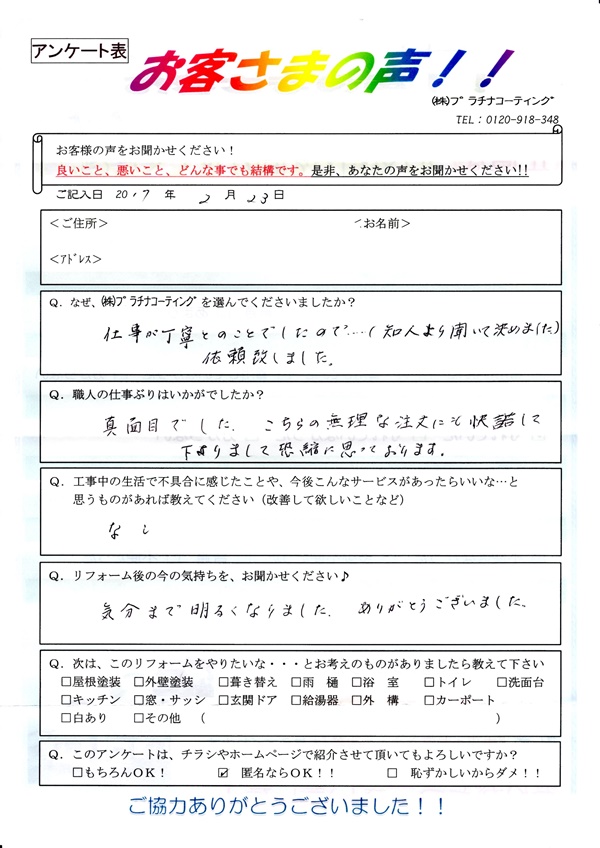 アンケート表
お客さまの声！！
㈱プラチナコーティング
TEL：0120-918-348
お客様の声をお聞かせください！
良いこと、悪いこと、どんな事でも結構です。是非、あなたの声をお聞かせください!!
ご記入日 2017 年 2 月 23 日
＜ご住所＞ お名前＞
＜ｱﾄﾞﾚｽ＞
Q．なぜ、㈱プラチナコーティングを選んでくださいましたか？
仕事が丁寧とのことでしたので…（知人より聞いて決めました）
依頼致しました。
Q．職人の仕事ぶりはいかがでしたか？
真面目でした。こちらの無理な注文にも快諾して
下さりまして恐縮に思っております。
Q．工事中の生活で不具合に感じたことや、今後こんなサービスがあったらいいな…と
思うものがあれば教えてください（改善して欲しいことなど）
なし
Q．リフォーム後の今の気持ちを、お聞かせください♪
気分まで明るくなりました。ありがとうございました。
Q．次は、このリフォームをやりたいな・・・とお考えのものがありましたら教えて下さい
□屋根塗装 □外壁塗装 □葺き替え □雨 樋 □浴 室 □トイレ □洗面台
□キッチン □窓・サッシ □玄関ドア □給湯器 □外 構 □カーポート
□白あり □その他 （ ）
Q．このアンケートは、チラシやホームページで紹介させて頂いてもよろしいですか？
□もちろんOK！ ☑ 匿名ならOK！！ □ 恥ずかしいからダメ！！
ご協力ありがとうございました！！